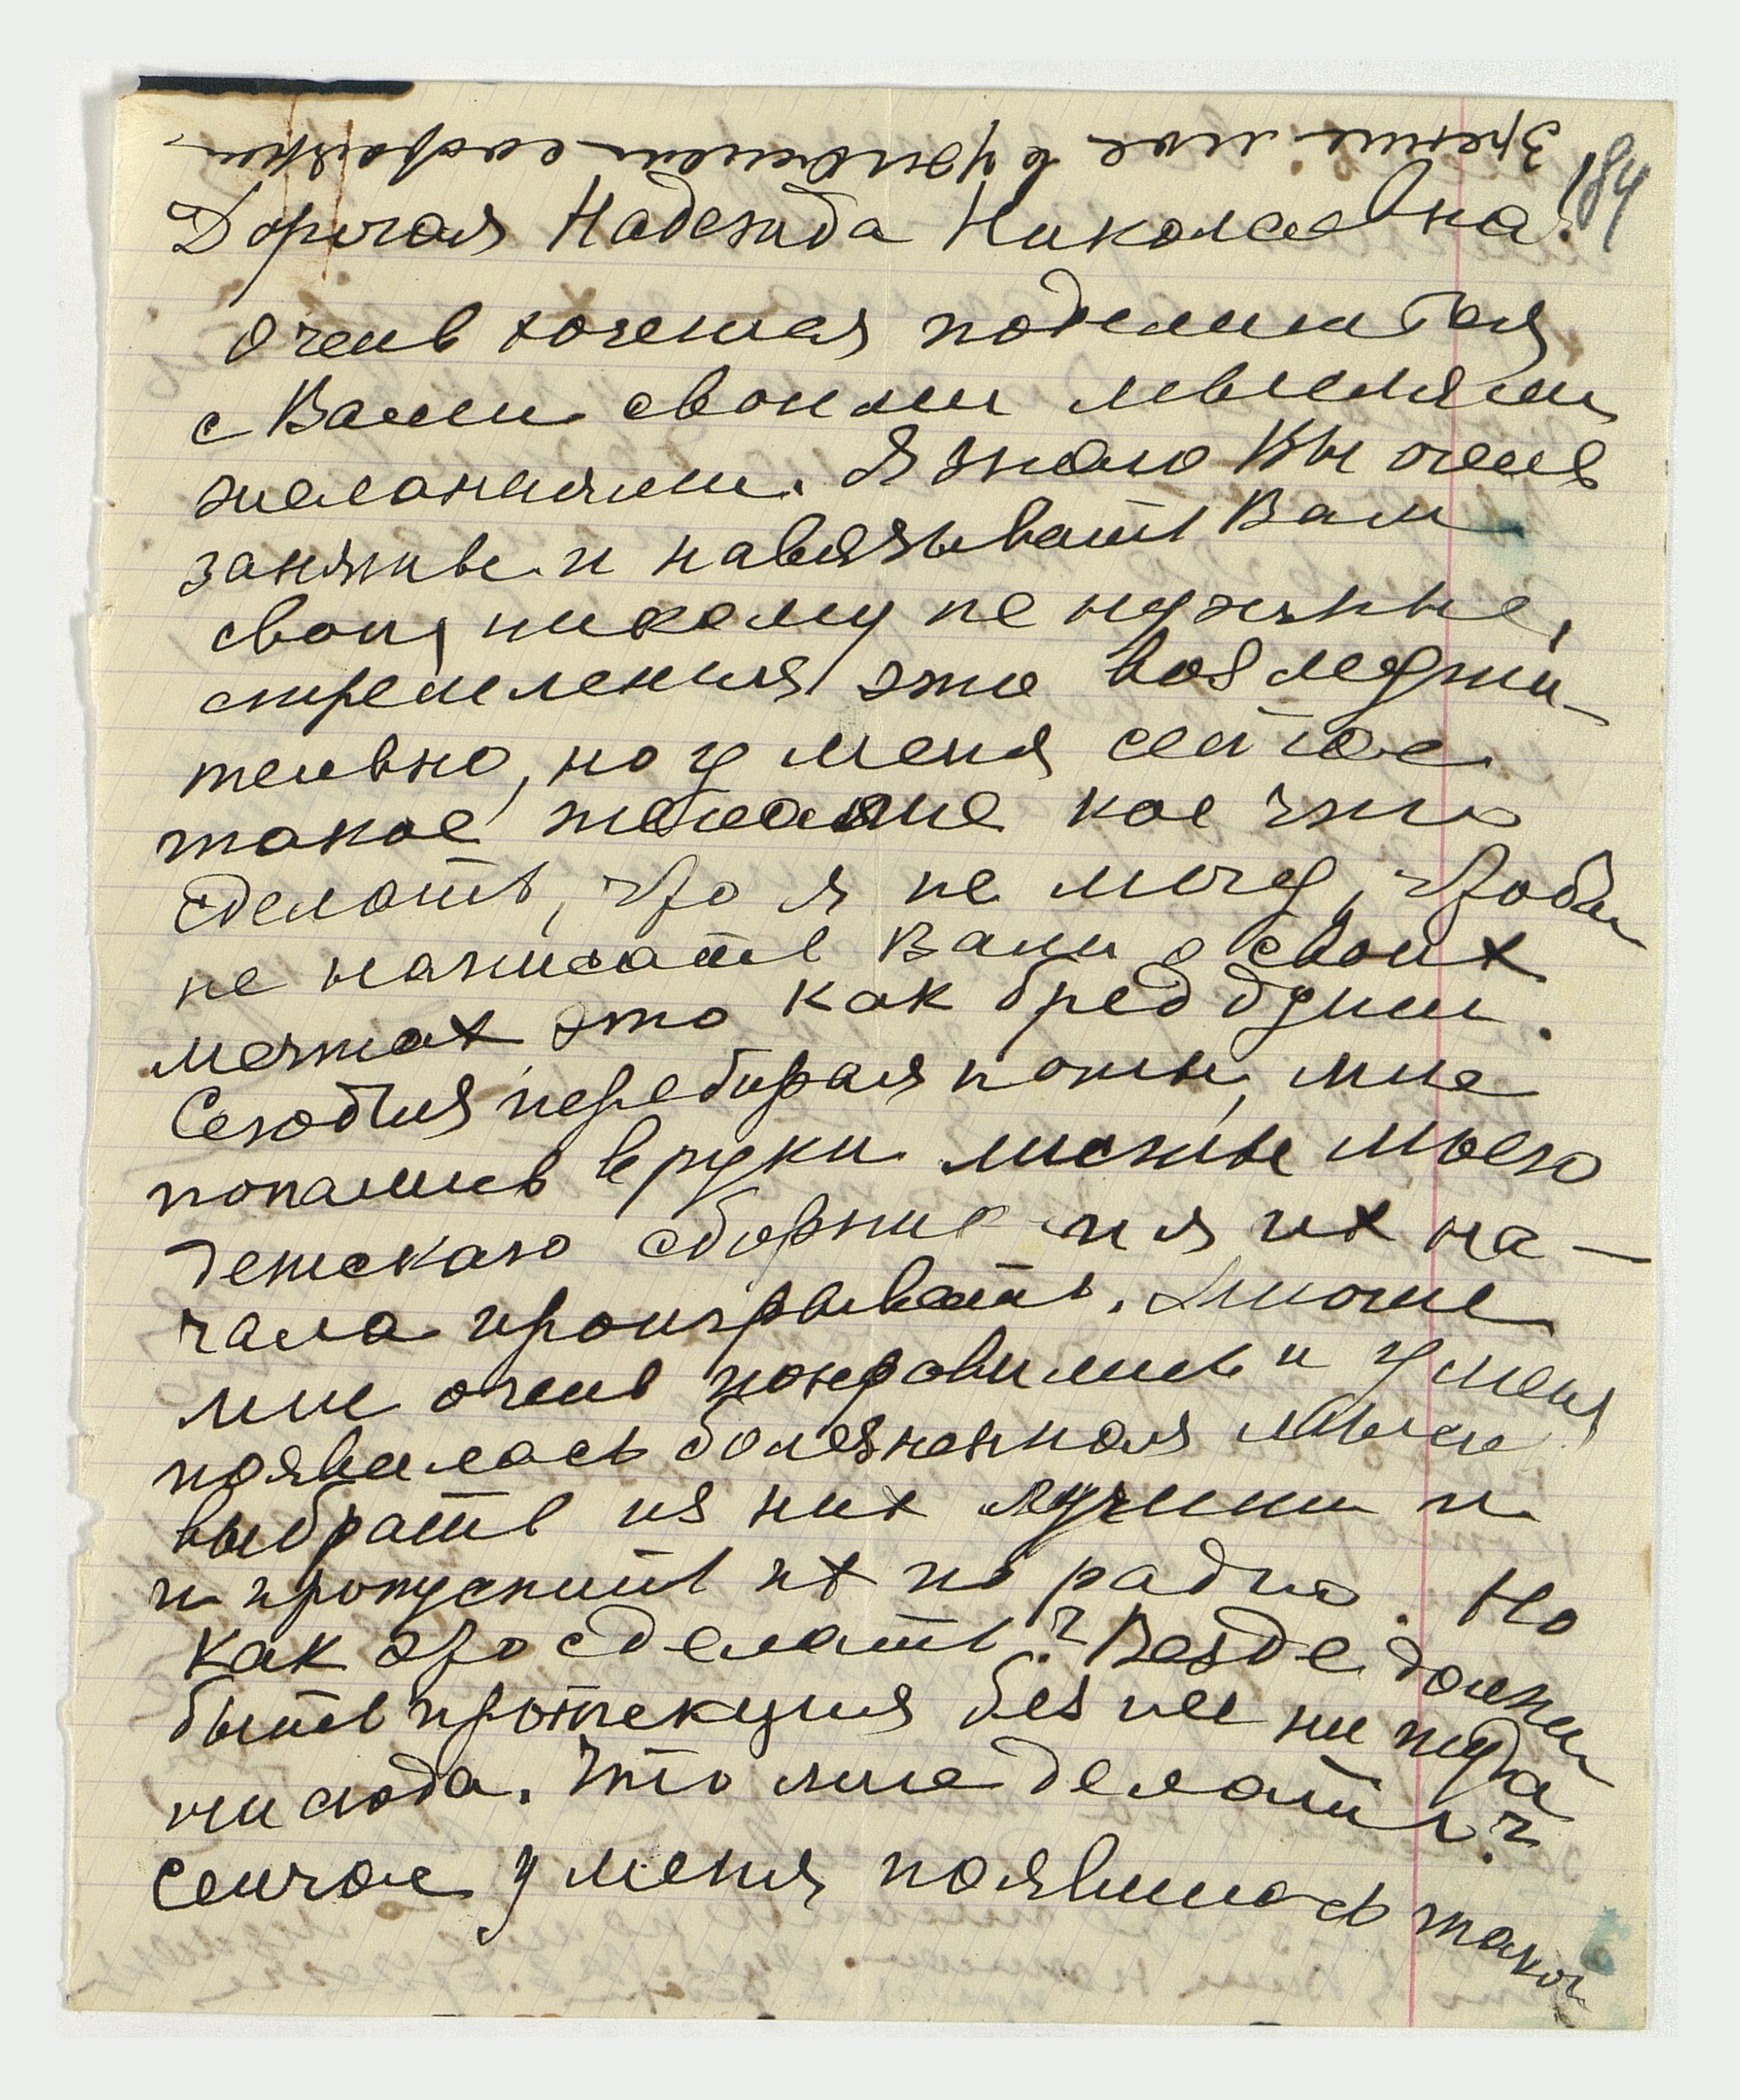 зрение мое в
184
Дорогая Надежда Николаевна!
Очень хочется поделиться
с Вами своими мыслями
желаниями. Я знаю Вы очень
заняты и навязывать Вам
свои, никому не нужные,
стремления это возмути-
тельно, но у меня сейчас
такое желание кое что
сделать, что я не могу, чтобы
не написать Вам о своих
мечтах это как бред души.
Сегодня перебирая ноты, мне
попались в руки листы моего
детскаго сборника и я их на-
чала проигрывать. Многие
мне очень понравились и у меня
появилась болезненная мысль
выбрать из них лучшии и
и пропустить их по радио. Но
как это сделать? Везде должна
быть протекция без нее ни туда
ни сюда. Что мне делать?
Сейчас у меня появилось такое